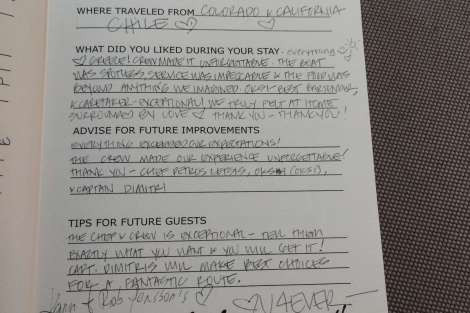 WHERE TRAVELED FROM COLORADO & CALIFORNIA
CHILE
WHAT DID YOU LIKED DURING YOUR STAY - everything
GREECE! CREW MADE IT UNFORGETTABLE. THE BOAT
WAS SPOTLESS, SERVICE WAS IMPECCABLE & THE FOOD WAS
BEYOND ANYTHING WE IMAGINED. OKSI BEST BARTENDER,
& CARETAKER - EXCEPTIONAL! WE TRULY FELT AT HOME
SURROUNDED BY LOVE THANK YOU - THANK YOU!
ADVISE FOR FUTURE IMPROVEMENTS
EVERYTHING EXCEEDED OUR EXPECTATIONS!
THE CREW MADE OUR EXPERIENCE UNFORGETTABLE!
THANK YOU - CHEF PETROS (OKSI),
& CAPTAIN DIMITRI
TIPS FOR FUTURE GUESTS
THE CHEF & CREW IS EXCEPTIONAL - TELL THEM
EXACTLY WHAT YOU WANT & YOU WILL GET IT!
CAPT. DIMITRIS WILL MAKE BEST CHOICES
FOR A FANTASTIC ROUTE.
& Rob
U 4EVER